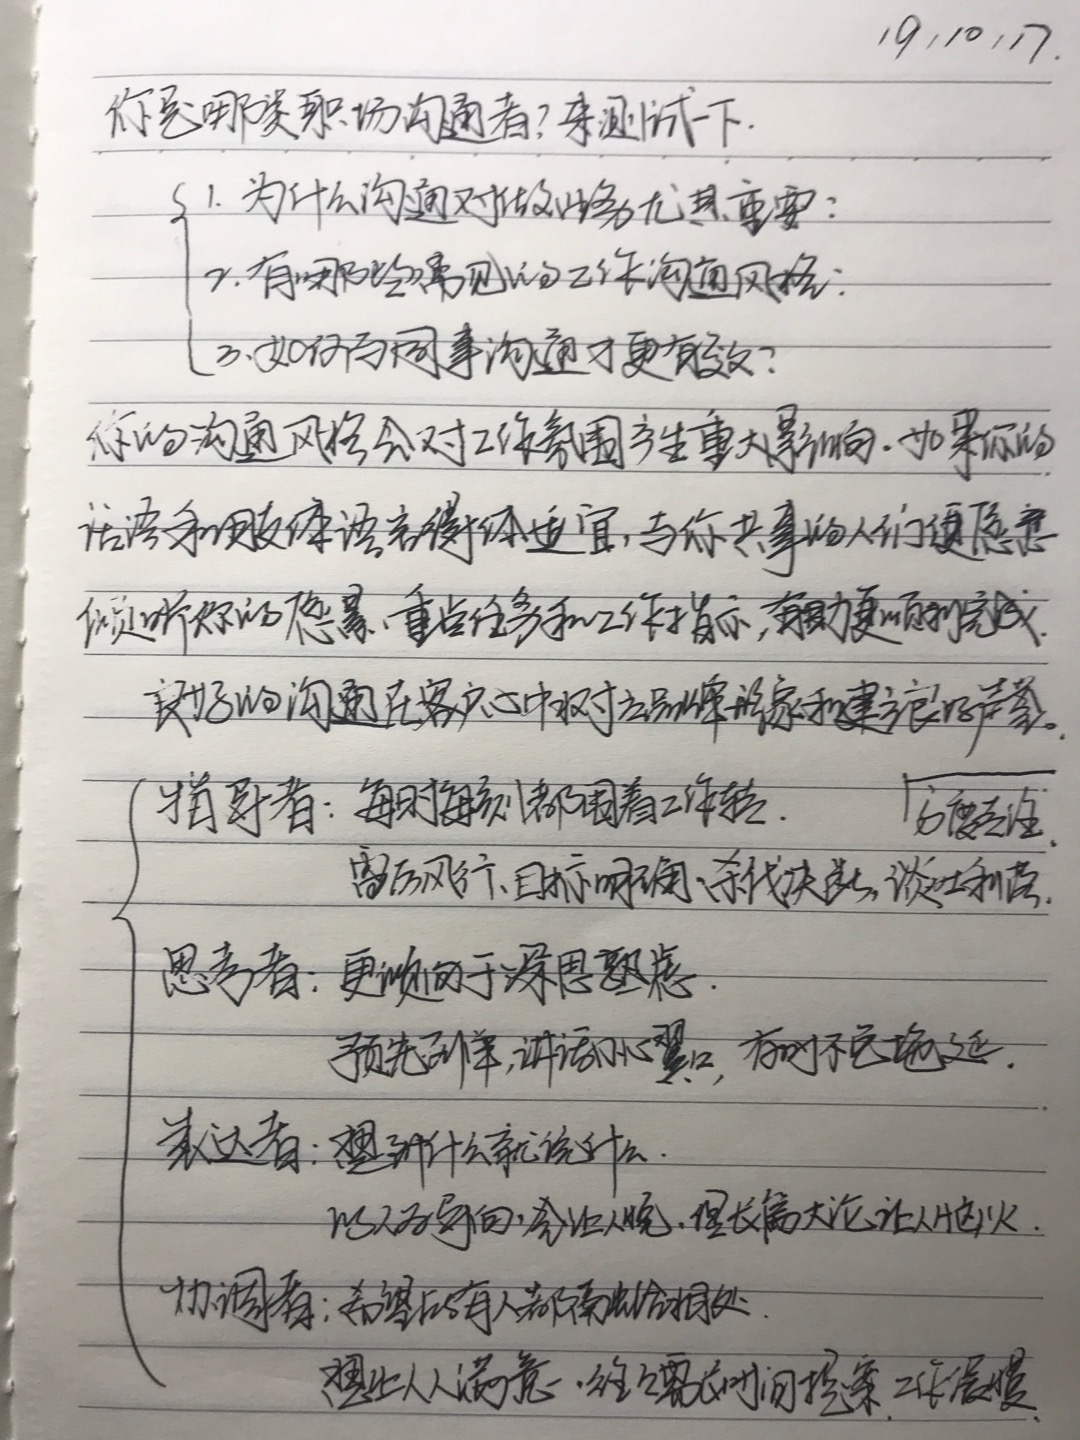 19.10.17.
你是哪类职场沟通者?来测试一下.
1. 为什么沟通对做业务尤其重要:
2. 有哪些常见的工作沟通风格:
3. 如何与同事沟通才更有效?
你的沟通风格会对工作氛围产生重大影响.如果你的
话语和肢体语言得体适宜,与你共事的人们便愿意
倾听你的愿景、重点任务和工作指示,有助更顺利完成.
良好的沟通在客户心中树立品牌形象和建立良好声誉。
指导者:每时每刻都围着工作转.
雷厉风行、目标明确、杀伐决断,谈吐利落.
思考者:更倾向于深思熟虑.
预先到岸,讲话小心翼口,有时不免拖延.
表达者:想到什么就说什么.
以人为导向,会让人,但长篇大论,让人恼火.
协调者:希望所有人都融洽相处.
想让人人满意,往往需花时间提案,工作缓慢.